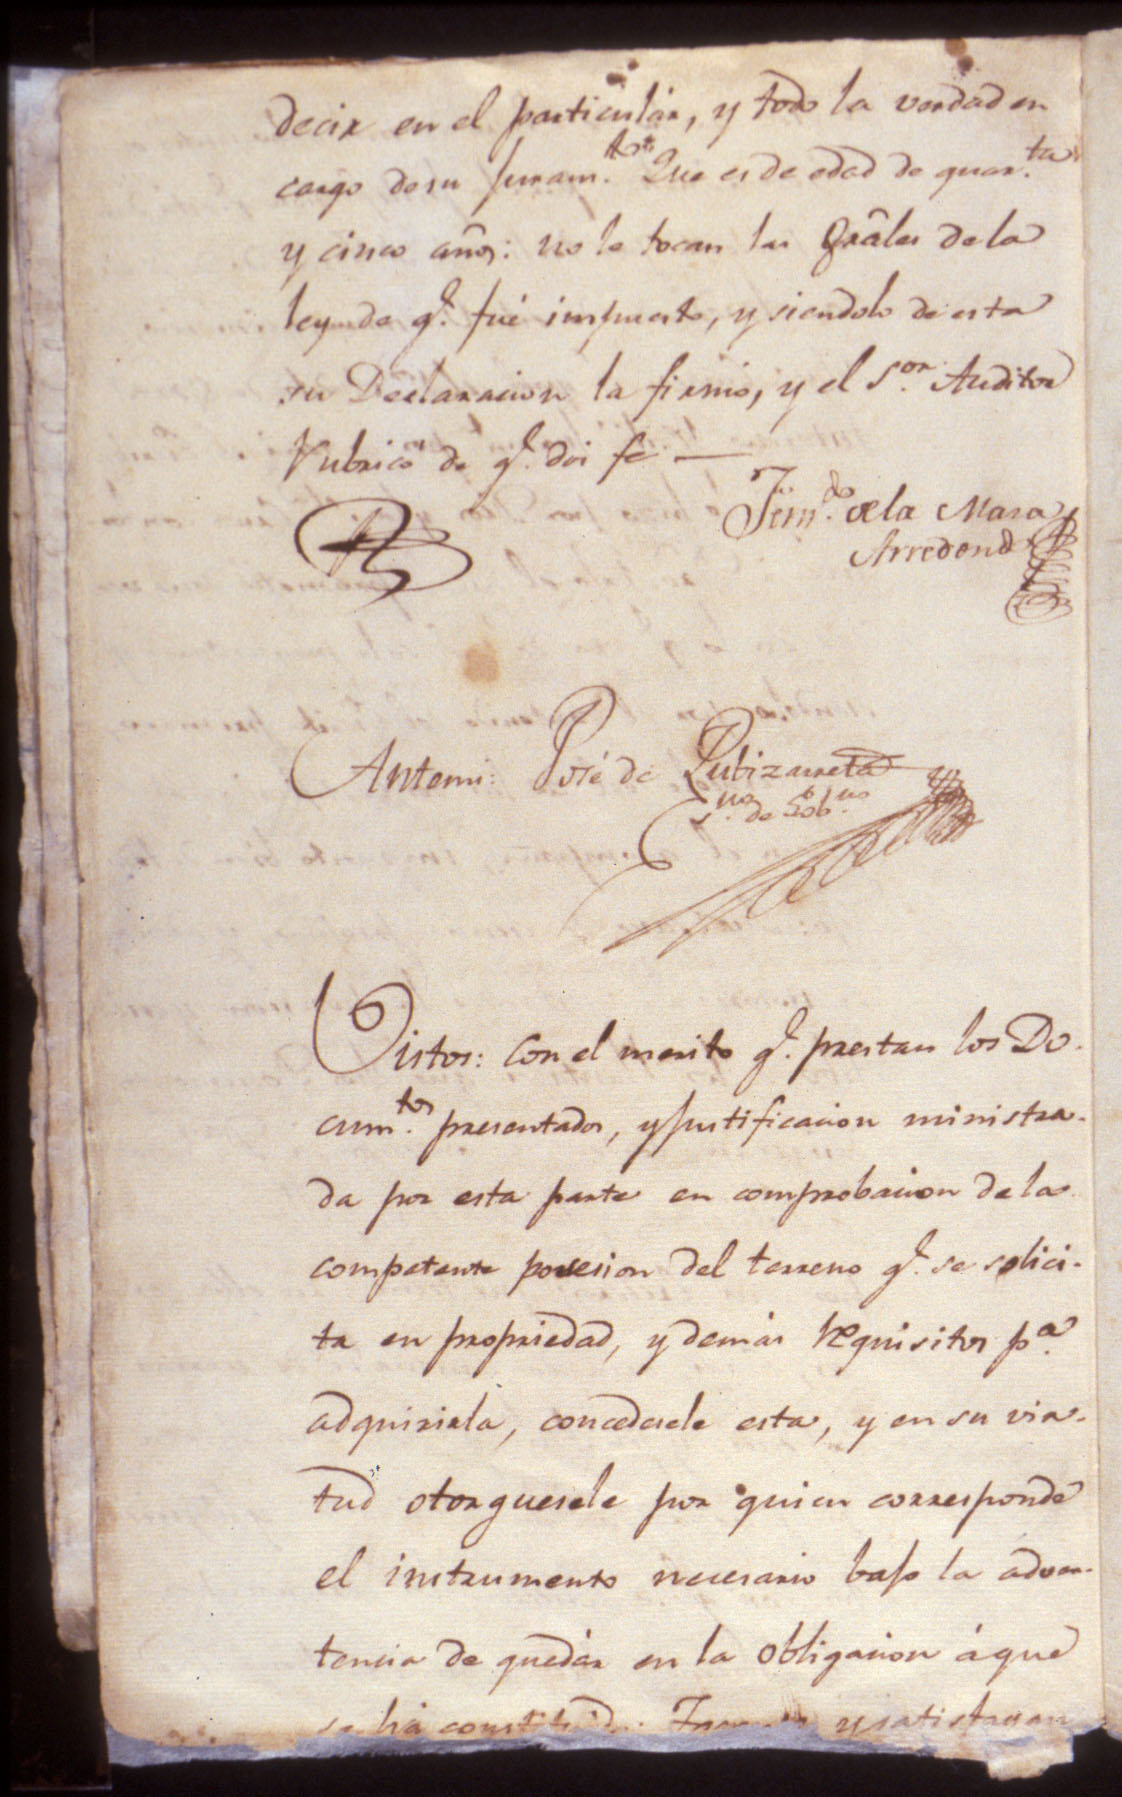 decir en el particulár, y todo la verdad en
cargo de su juram.to Que es de edad de quar.ta
y cinco años: no le tocan las Grâles de la
ley de q.e fué impuesto, y siendolo de esta
su Declaracion la firmó, y el S.or Auditor
rubricó de q.e doi fe —
Fern.do de la Maza y
Arredondo
Antemi: José de Zubizarreta
S.no de Gob.no
Vistos: Con el merito q.e prestan los Do-
cum.tos presentados, y justificacion ministra-
da por esta parte en comprobacion de la
competente posesion del terreno q.e se solici-
ta en propriedad, y demás requisitos p.a
adquirirla, concedesele esta, y en su vir-
tud otorguesele por quien corresponde
el instrumento necesario bajo la adver-
tencia de quedár en la obligacion á que
se há constituido: y satisfagan